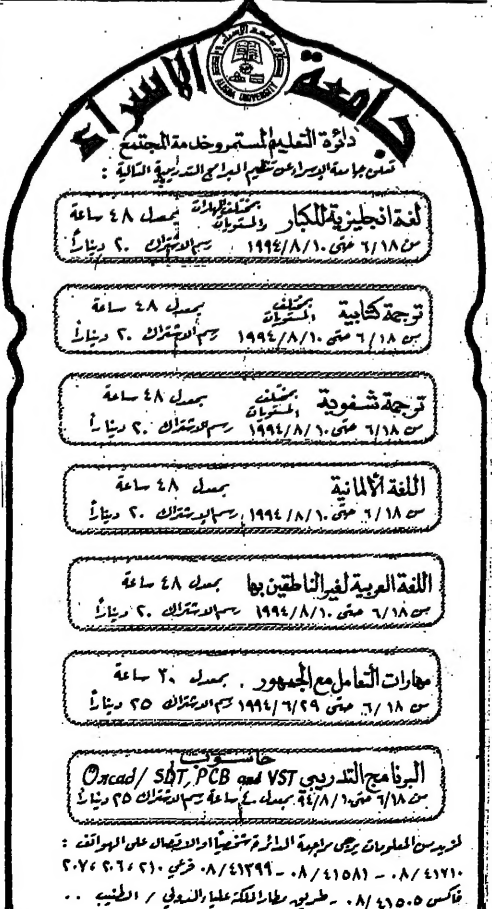 جامعة الإسراء
ISRA UNIVERSITY
دائرة التعليم المستمر وخدمة المجتمع
تعلن جامعة الإسراء عن تنظيم البرامج التدريبية التالية :
لغة انجليزية للكبار بمختلف المهارات والمستويات بمعدل ٤٨ ساعة
من ٦/١٨ حتى ١٩٩٤/٨/١٠ رسم الاشتراك ٢٠ ديناراً
ترجمة كتابية بمختلف المستويات بمعدل ٤٨ ساعة
من ٦/١٨ حتى ١٩٩٤/٨/١٠ رسم الاشتراك ٢٠ ديناراً
ترجمة شفوية بمختلف المستويات بمعدل ٤٨ ساعة
من ٦/١٨ حتى ١٩٩٤/٨/١٠ رسم الاشتراك ٢٠ ديناراً
اللغة الألمانية بمعدل ٤٨ ساعة
من ٦/١٨ حتى ١٩٩٤/٨/١٠ رسم الاشتراك ٢٠ ديناراً
اللغة العربية لغير الناطقين بها بمعدل ٤٨ ساعة
من ٦/١٨ حتى ١٩٩٤/٨/١٠ رسم الاشتراك ٢٠ ديناراً
مهارات التعامل مع الجمهور . بمعدل ٣٠ ساعة
من ٦/١٨ حتى ١٩٩٤/٦/٢٩ رسم الاشتراك ٢٥ ديناراً
حاسوب
البرنامج التدريبي Orcad/ SDT, PCB and VST
من ٦/١٨ حتى ٩٤/٨/١٠ بمعدل ساعة رسم الاشتراك ٢٥ ديناراً
لمزيد من المعلومات يرجى مراجعة الدائرة شخصياً او الاتصال على الهواتف :
٠٨/٤١٧١٠ - ٠٨/٤١٥٨١ - ٠٨/٤١٣٩٩ فرعي ٢١٠ ، ٢٠٦ ، ٢٠٧
فاكس ٠٨/٤١٥٠٥ - طريق مطار الملكة علياء الدولي / الطنيب ..